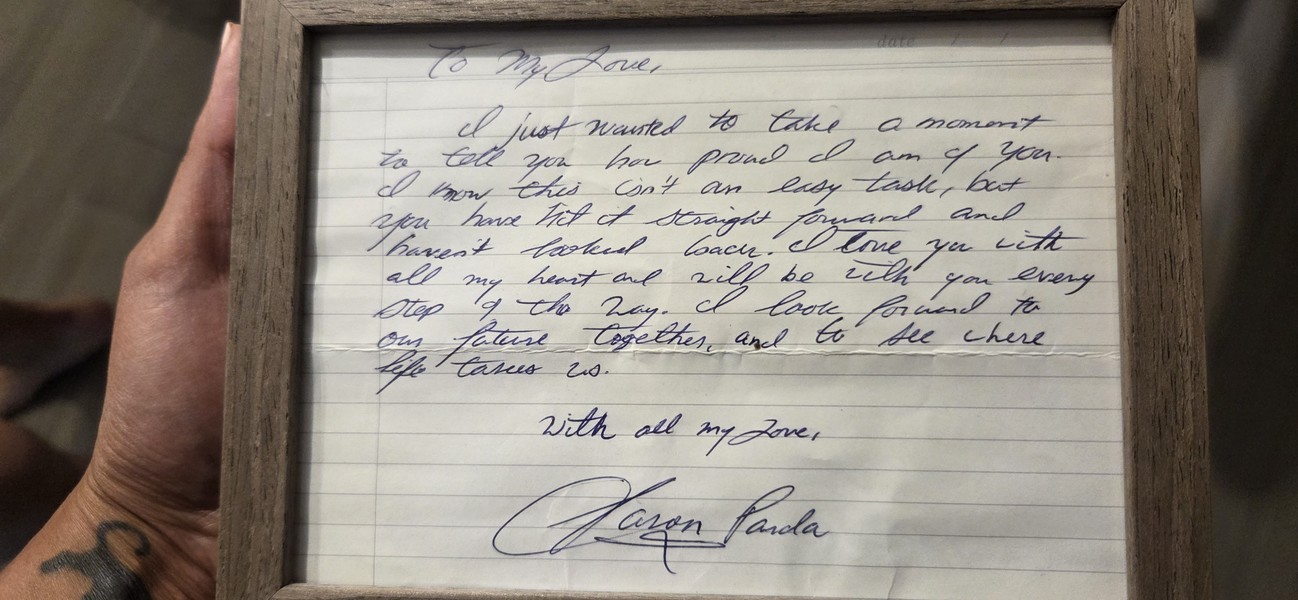 date / /
To My Love,
I just wanted to take a moment
to tell you how proud I am of you.
I know this isn't an easy task, but
you have hit it straight forward and
haven't looked back. I love you with
all my heart and will be with you every
step of the way. I look forward to
our future together, and to see where
life takes us.
With all my Love,
Panda